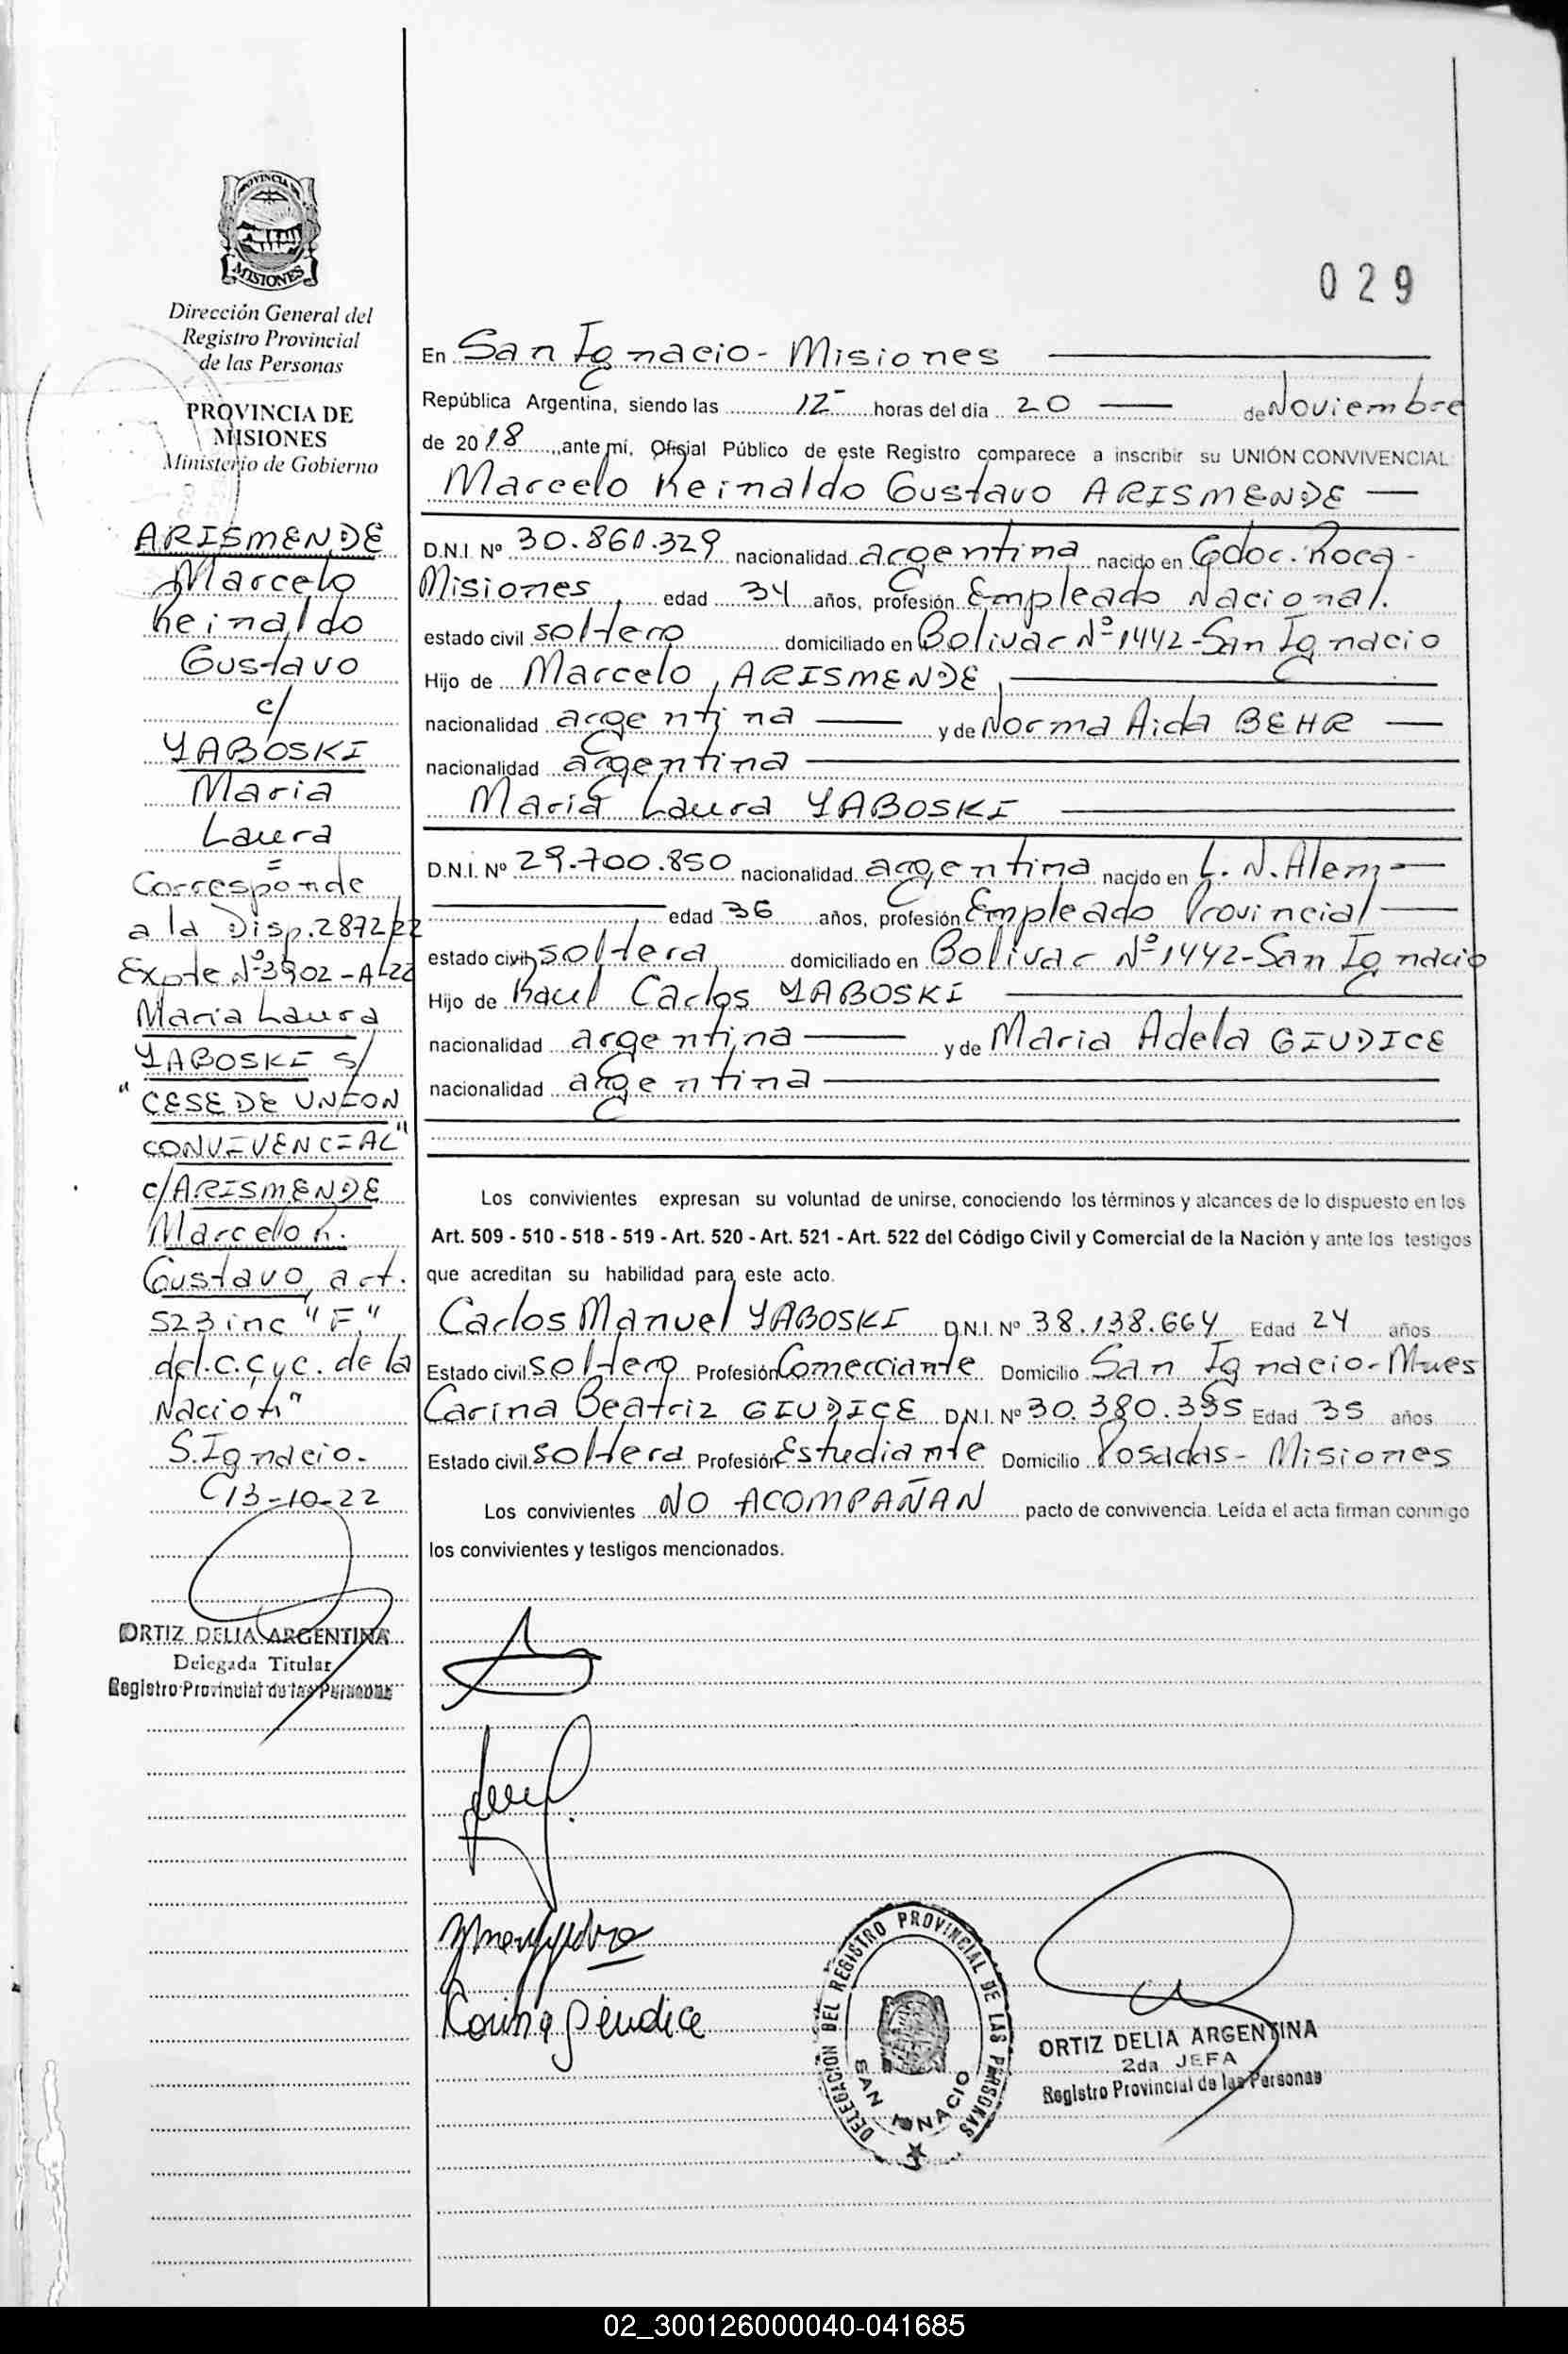 PROVINCIA DE
MISIONES
Dirección General del
Registro Provincial
de las Personas
PROVINCIA DE
MISIONES
Ministerio de Gobierno
ARISMENDE
Marcelo
Reinaldo
Gustavo
c/
YABOSKI
Maria
Laura
=
Corresponde
a la Disp. 2872/22
Expte Nº 3902-A-22
Maria Laura
YABOSKI S/
"CESE DE UNION
CONVIVENCIAL"
c/ARISMENDE
Marcelo R.
Gustavo, art.
523 inc "F"
del C.C y C. de la
Nación"
S. Ignacio.
13-10-22
ORTIZ DELIA ARGENTINA
Delegada Titular
Registro Provincial de las Personas
029
En San Ignacio - Misiones
República Argentina, siendo las 12 horas del día 20 de Noviembre
de 2018, ante mí, Oficial Público de este Registro comparece a inscribir su UNIÓN CONVIVENCIAL
Marcelo Reinaldo Gustavo ARISMENDE
D.N.I. Nº 30.860.329 nacionalidad argentina nacido en Gdor. Roca -
Misiones edad 34 años, profesión Empleado Nacional.
estado civil soltero domiciliado en Bolivar Nº 1442-San Ignacio
Hijo de Marcelo ARISMENDE
nacionalidad argentina y de Norma Aida BEHR
nacionalidad argentina
Maria Laura YABOSKI
D.N.I. Nº 29.700.850 nacionalidad argentina nacido en L. N. Alem
edad 36 años, profesión Empleado Provincial
estado civil soltera domiciliado en Bolivar Nº 1442-San Ignacio
Hijo de Raul Carlos YABOSKI
nacionalidad argentina y de Maria Adela GIUDICE
nacionalidad argentina
Los convivientes expresan su voluntad de unirse, conociendo los términos y alcances de lo dispuesto en los
Art. 509 - 510 - 518 - 519 - Art. 520 - Art. 521 - Art. 522 del Código Civil y Comercial de la Nación y ante los testigos
que acreditan su habilidad para este acto.
Carlos Manuel YABOSKI D.N.I. Nº 38.138.664 Edad 24 años
Estado civil soltero Profesión Comerciante Domicilio San Ignacio-Mnes
Carina Beatriz GIUDICE D.N.I. Nº 30.380.385 Edad 35 años
Estado civil soltera Profesión Estudiante Domicilio Posadas - Misiones
Los convivientes NO ACOMPAÑAN pacto de convivencia. Leída el acta firman conmigo
los convivientes y testigos mencionados.
Karina Giudice
DELEGACIÓN DEL REGISTRO PROVINCIAL DE LAS PERSONAS
SAN IGNACIO
ORTIZ DELIA ARGENTINA
2da JEFA
Registro Provincial de las Personas
02_300126000040-041685